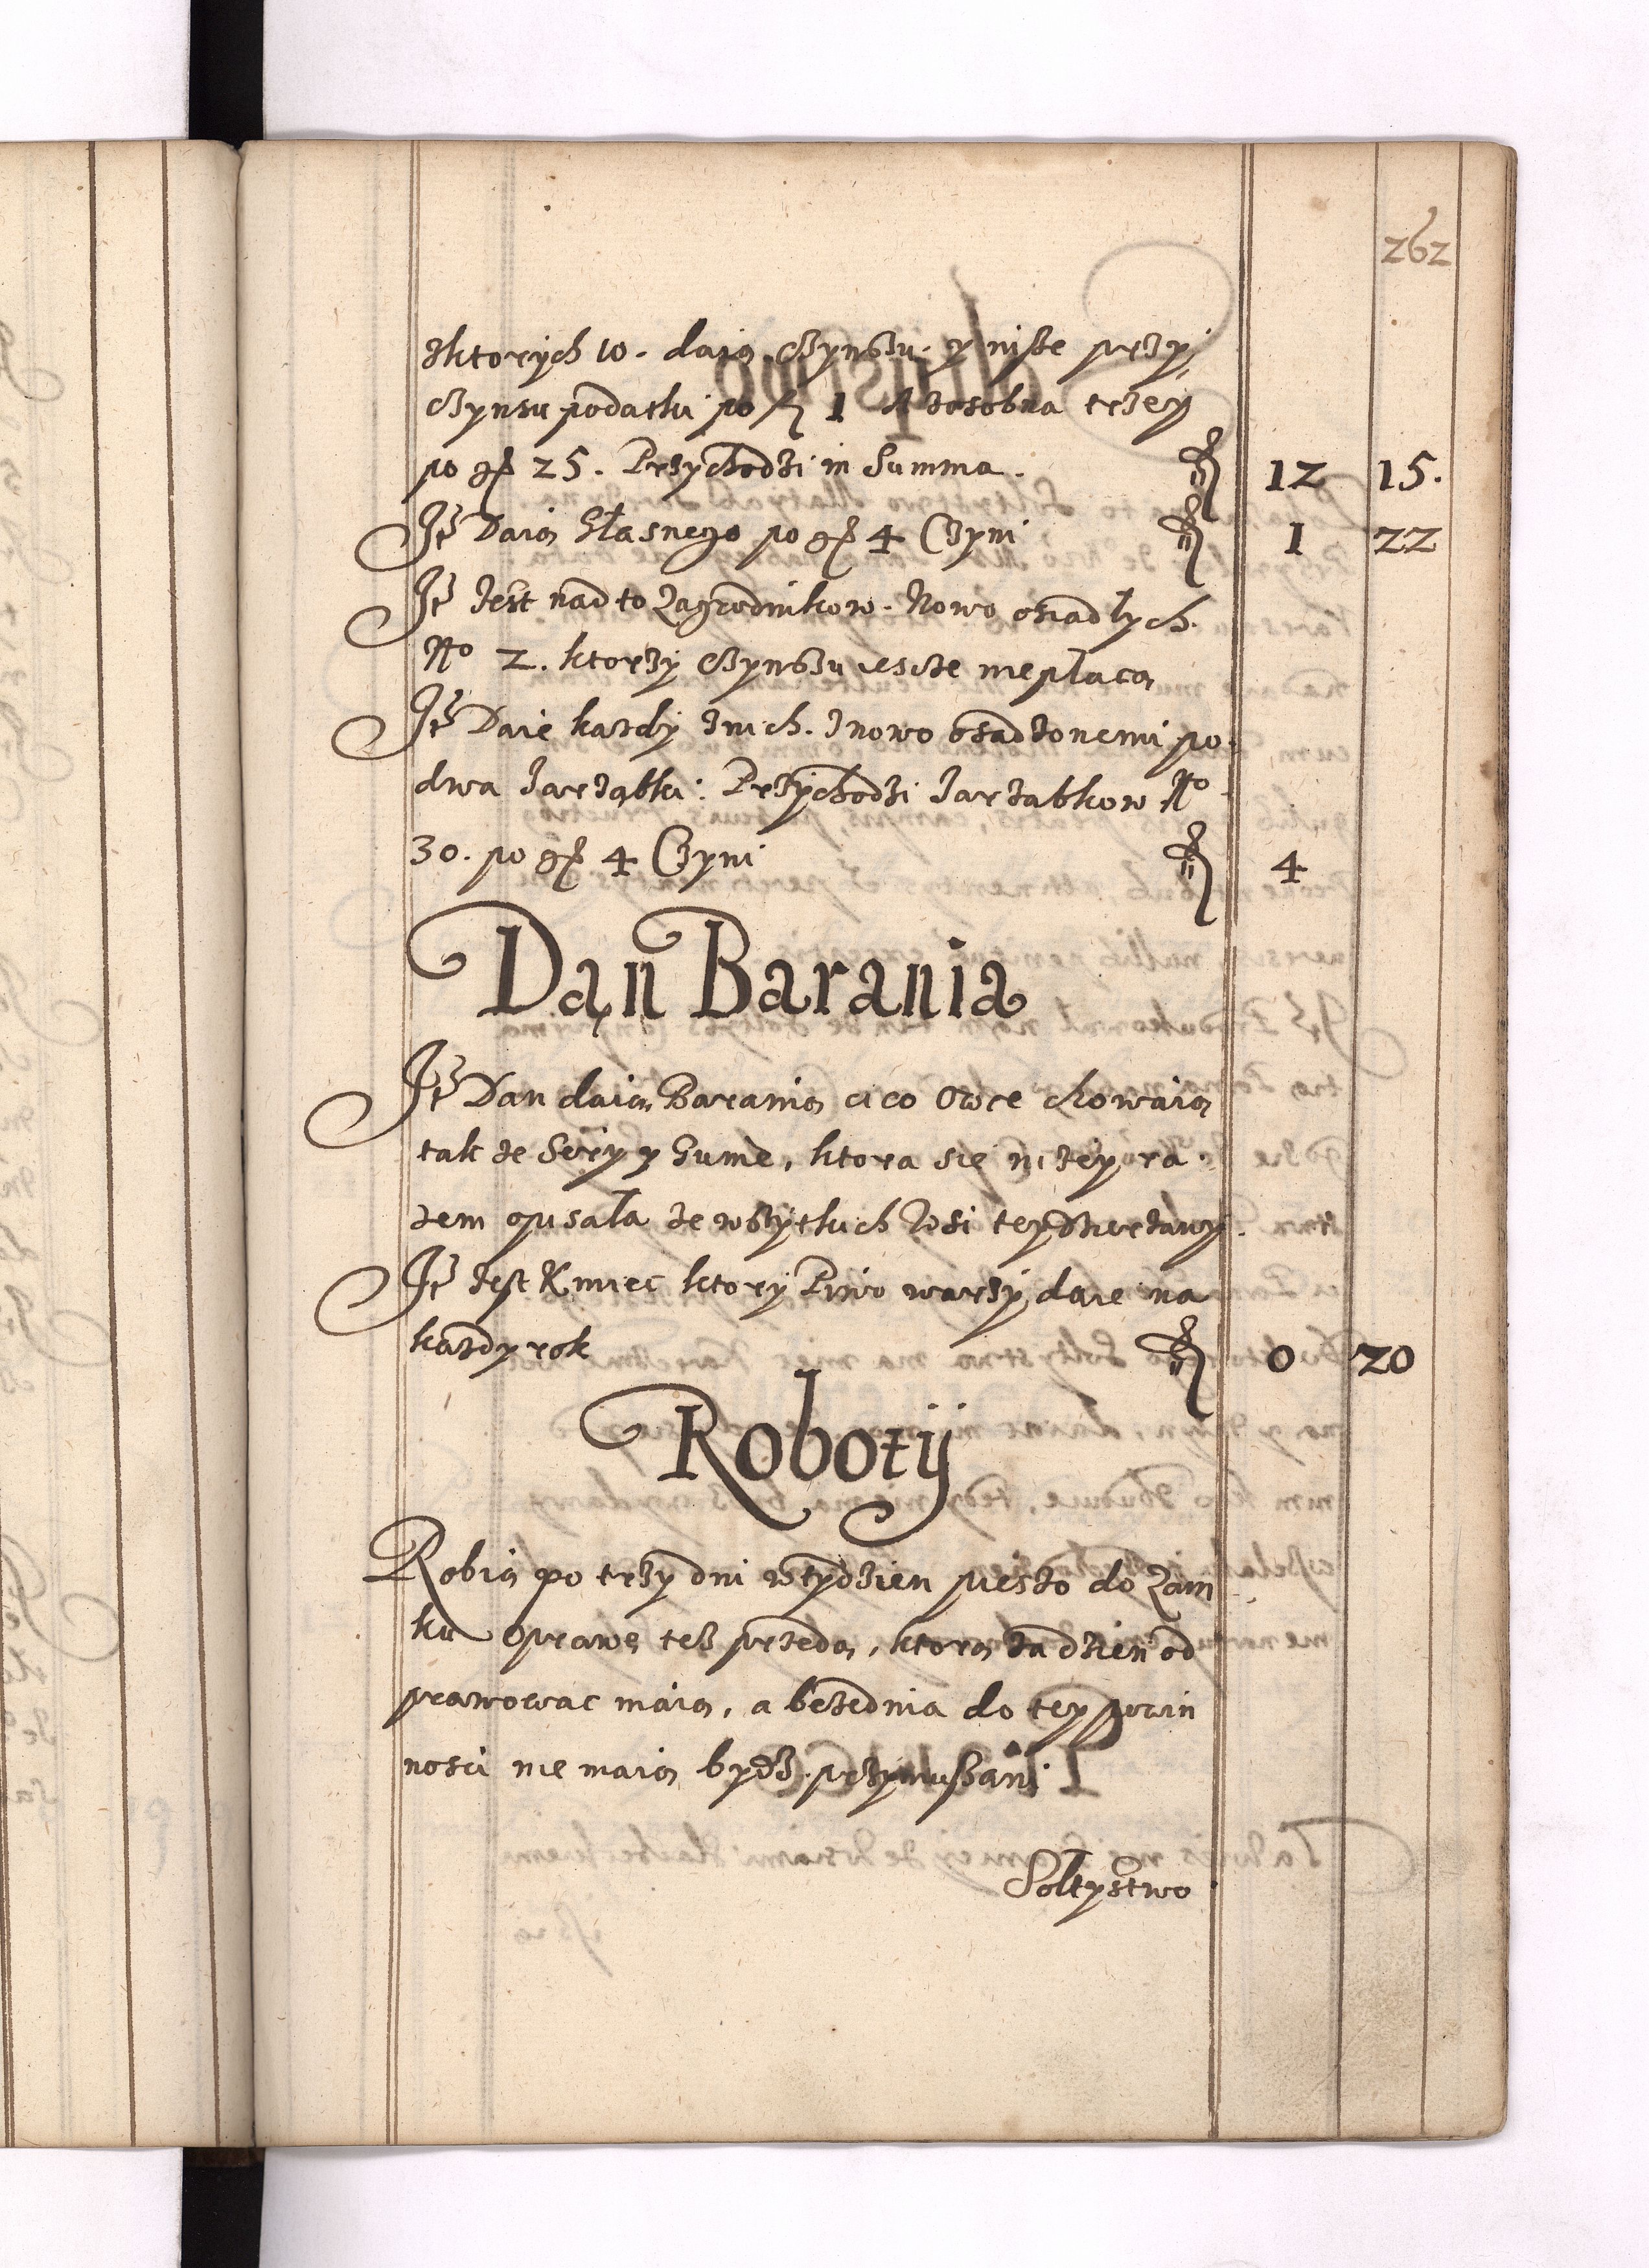 262
zktorych 10. daią Czynszu. y insze przy
Czynsu podatki po fl 1 A zosobna trzey
po gr 25. Przychodzi in Summa. fl 12 15.
It Daią Stasnego po gr 4 Czyni fl 1 22
It Jest nad to Zagrodnikow. Nowo osiadłych.
No 2. ktorzy Czynszu iescze nie płacą
It Daie kazdy znich. znowo osadzonemi po
dwa Jarząbki. Przychodzi Jarząbkow No
30. po gr 4 Czyni fl 4
Dań Barania
It Dan daią Baranią ci co Owce chowaią
tak ze Sery y Gunie, ktora się nizey ra
zem opisała ze wszytkich Wsi tey Dzierzawy.
It Jest Kmiec ktory Piwo warzy daie na
kazdy rok fl 0 20
Roboty
Robią po trzy dni w tydzien pieszo do Zam
ku Oprawę tesz przedą, ktorą za dzien od
prawowac maią, a beze dnia do tey powin
nosci nie maią bydz przymuszani
Sołtystwo